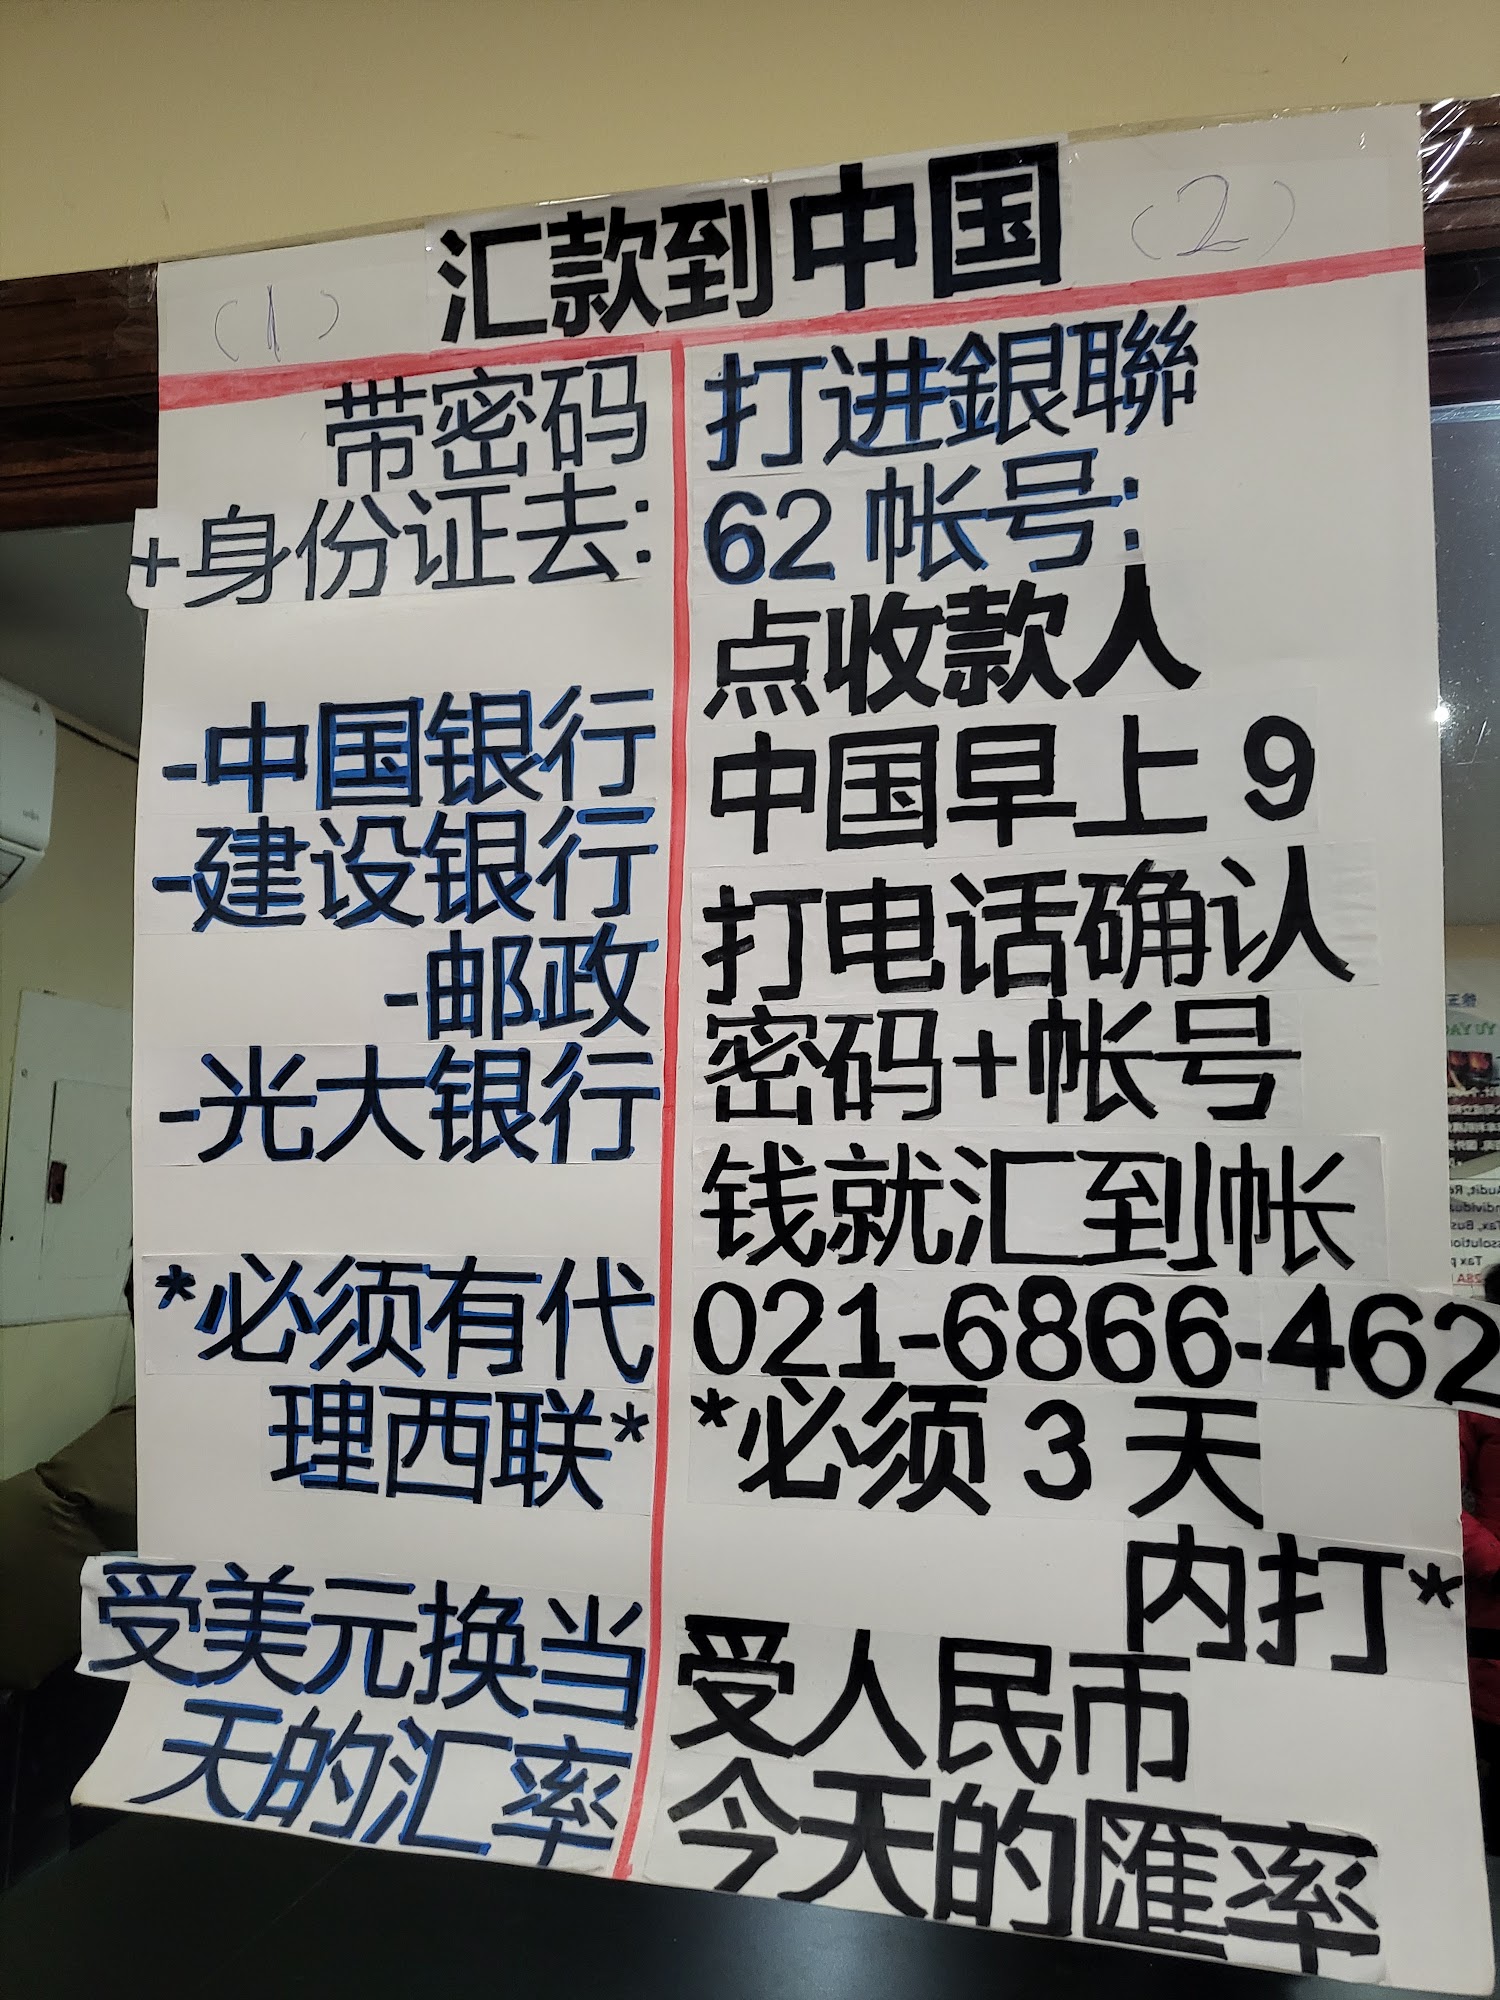 汇款到中国
(1)
带密码
+身份证去:
-中国银行
-建设银行
-邮政
-光大银行
*必须有代
理西联*
受美元换当
天的汇率
(2)
打进銀聯
62 帐号:
点收款人
中国早上 9
打电话确认
密码+帐号
钱就汇到帐
021-6866-462
*必须 3 天
内打*
受人民币
今天的匯率